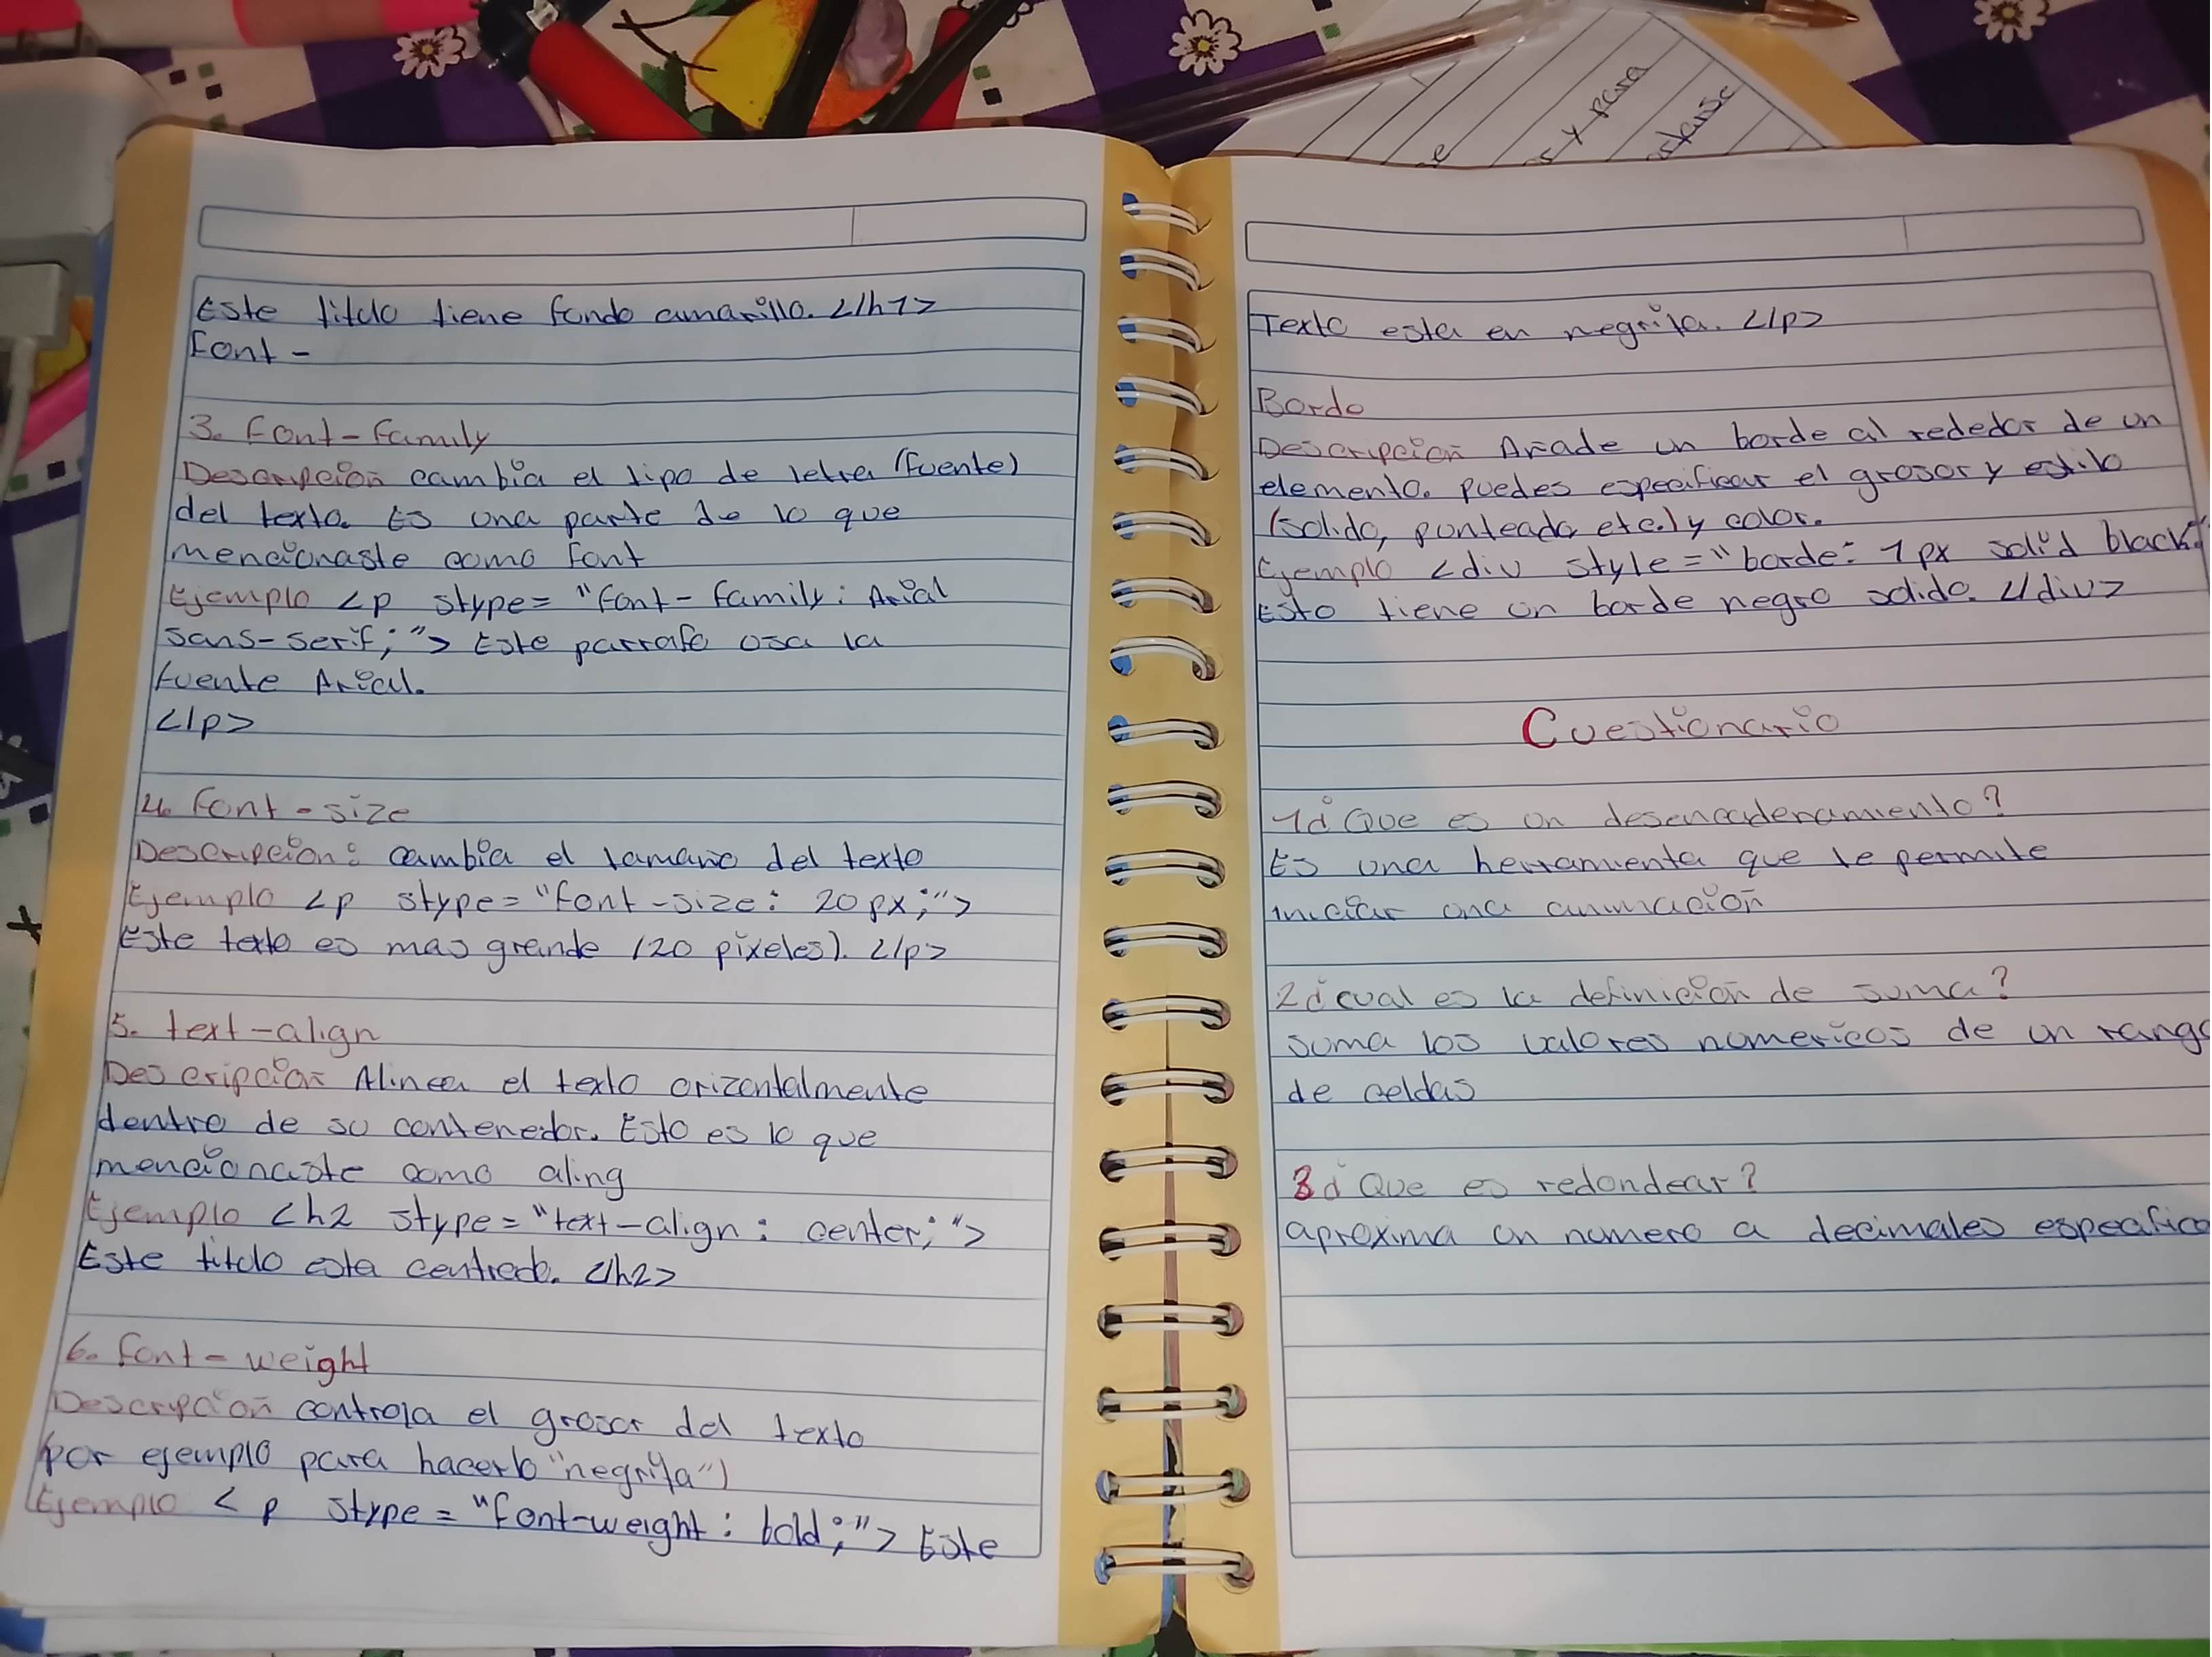 Este titulo tiene fondo amarillo. </h1>
Font -
3. Font-Family
Descripcion cambia el tipo de letra (fuente)
del texto. Es una parte de lo que
mencionaste como font
Ejemplo <p stype= "font-family: Arial
sans-serif;"> Este parrafo usa la
fuente Arial.
</p>
4. Font-size
Descripcion: cambia el tamaño del texto
Ejemplo <p stype= "font-size: 20px;">
Este texto es mas grande (20 pixeles). </p>
5. text-align
Descripcion Alinea el texto orizontalmente
dentro de su contenedor. Esto es lo que
mencionaste como aling
Ejemplo <h2 stype= "text-align: center;">
Este titulo esta centrado. </h2>
6. font-weight
Descripcion controla el grosor del texto
(por ejemplo para hacerlo "negrita")
Ejemplo <p stype = "font-weight: bold;"> Este
Texto esta en negrita. </p>
Borde
Descripcion Añade un borde al rededor de un
elemento. puedes especificar el grosor y estilo
(solido, punteado etc.) y color.
Ejemplo <div style="borde: 1px solid black"
Esto tiene un borde negro solido. </div>
Cuestionario
1¿Que es un desencadenamiento?
Es una herramienta que le permite
iniciar una animación
2¿cual es la definicion de suma?
suma los valores numericos de un rango
de celdas
3¿Que es redondear?
aproxima un numero a decimales especifico
s y para